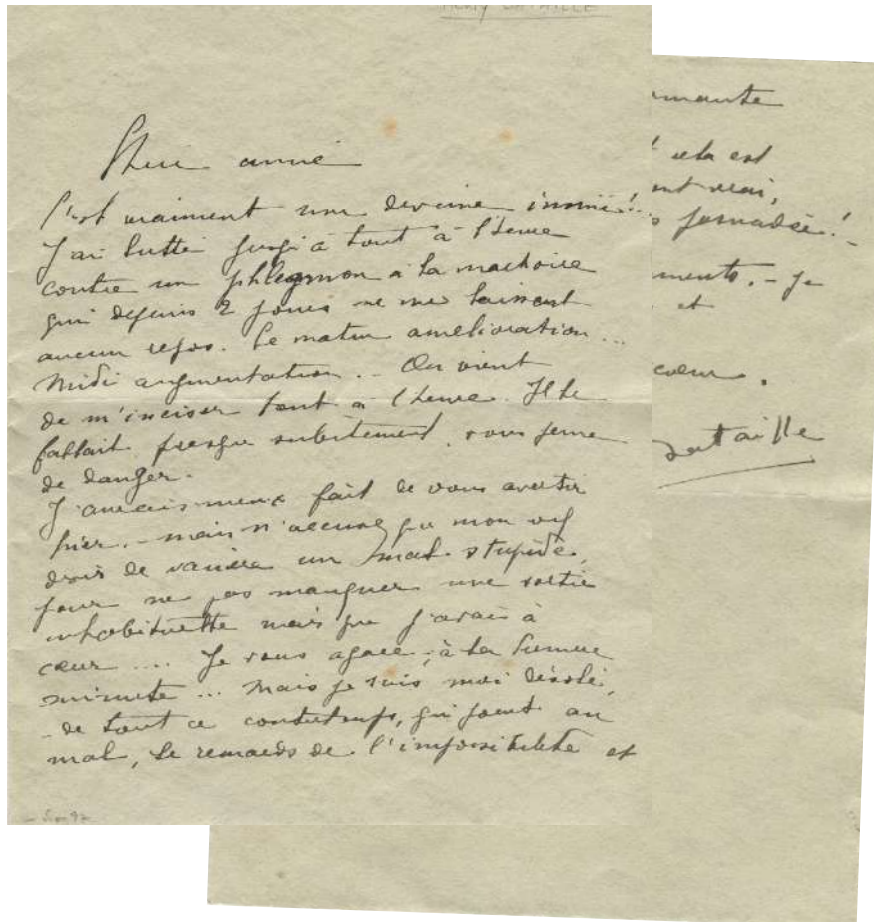 HENRY BATAILLE
Chère amie
C'est vraiment une déveine inouie!..
J'ai lutté jusqu'à tout à l'heure
contre un phlegmon à la machoire
qui depuis 2 jours ne me laissait
aucun repos. Le matin amélioration...
Midi augmentation.. On vient
de m'inciser tout à l'heure. Il le
fallait presque subitement, sous peine
de danger.
J'aurais mieux fait de vous avertir
hier. - mais n'accusez que mon vif
désir de vaincre un mal stupide,
pour ne pas manquer une sortie
inhabituelle mais que j'avais à
cœur .... Je vous agace, à la
minute ... Mais je suis, moi désolé,
de tout ce contretemps, qui joint au
mal, le remords de l'impossibilité et
cela est
vrai,
! -
. - Je
et
coeur.
Bataille